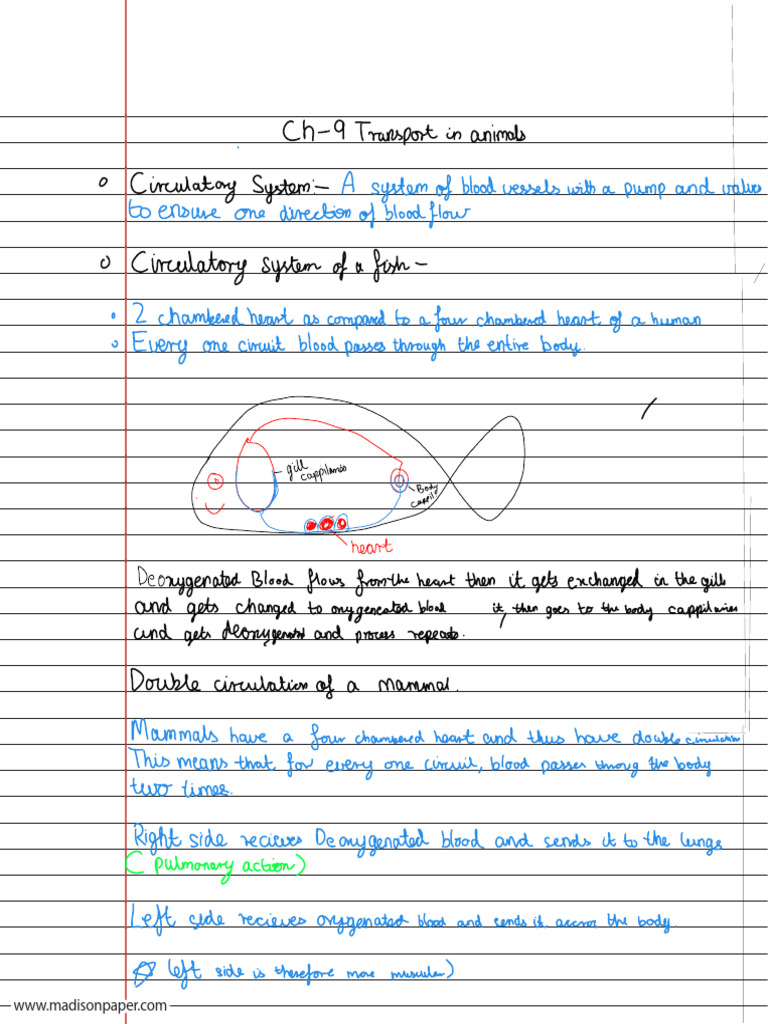 Ch-9 Transport in animals
o Circulatory System:- A system of blood vessels with a pump and valves
to ensure one direction of blood flow
o Circulatory system of a fish -
2 chambered heart as compared to a four chambered heart of a human
Every one circuit blood passes through the entire body.
gill
cappilaries
Body
heart
Deoxygenated Blood flows from the heart then it gets exchanged in the gills
and gets changed to oxygenated blood it, then goes to the body cappilaries
and gets deoxygenated and process repeats.
Double circulation of a mammal.
Mammals have a four chambered heart and thus have double circulation
This means that, for every one circuit, blood passes throug the body
two times.
Right side recieves Deoxygenated blood and sends it to the lungs
( pulmonary action)
Left side recieves oxygenated blood and sends it accross the body.
left side is therefore more muscular)
www.madisonpaper.com